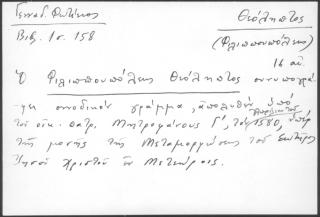 Γενναδ. Φωτίκιος
Θεόληπτος
Βιβ. 1σ. 158
(Φιλιππουπόλεως)
16 αἰ.
Ὁ Φιλιππουπόλεως Θεόληπτος συνυπογρά-
φει συνοδικὸν γράμμα, ἀπολυθὲν ὑπὸ
τοῦ οἰκ. πατρ. Μητροφάνους Γ', τὸν 1580, ὑπὲρ
τῆς μονῆς τῆς Μεταμορφώσεως τοῦ Σωτῆρος
Ἰησοῦ Χριστοῦ ἐν Μετεώροις.